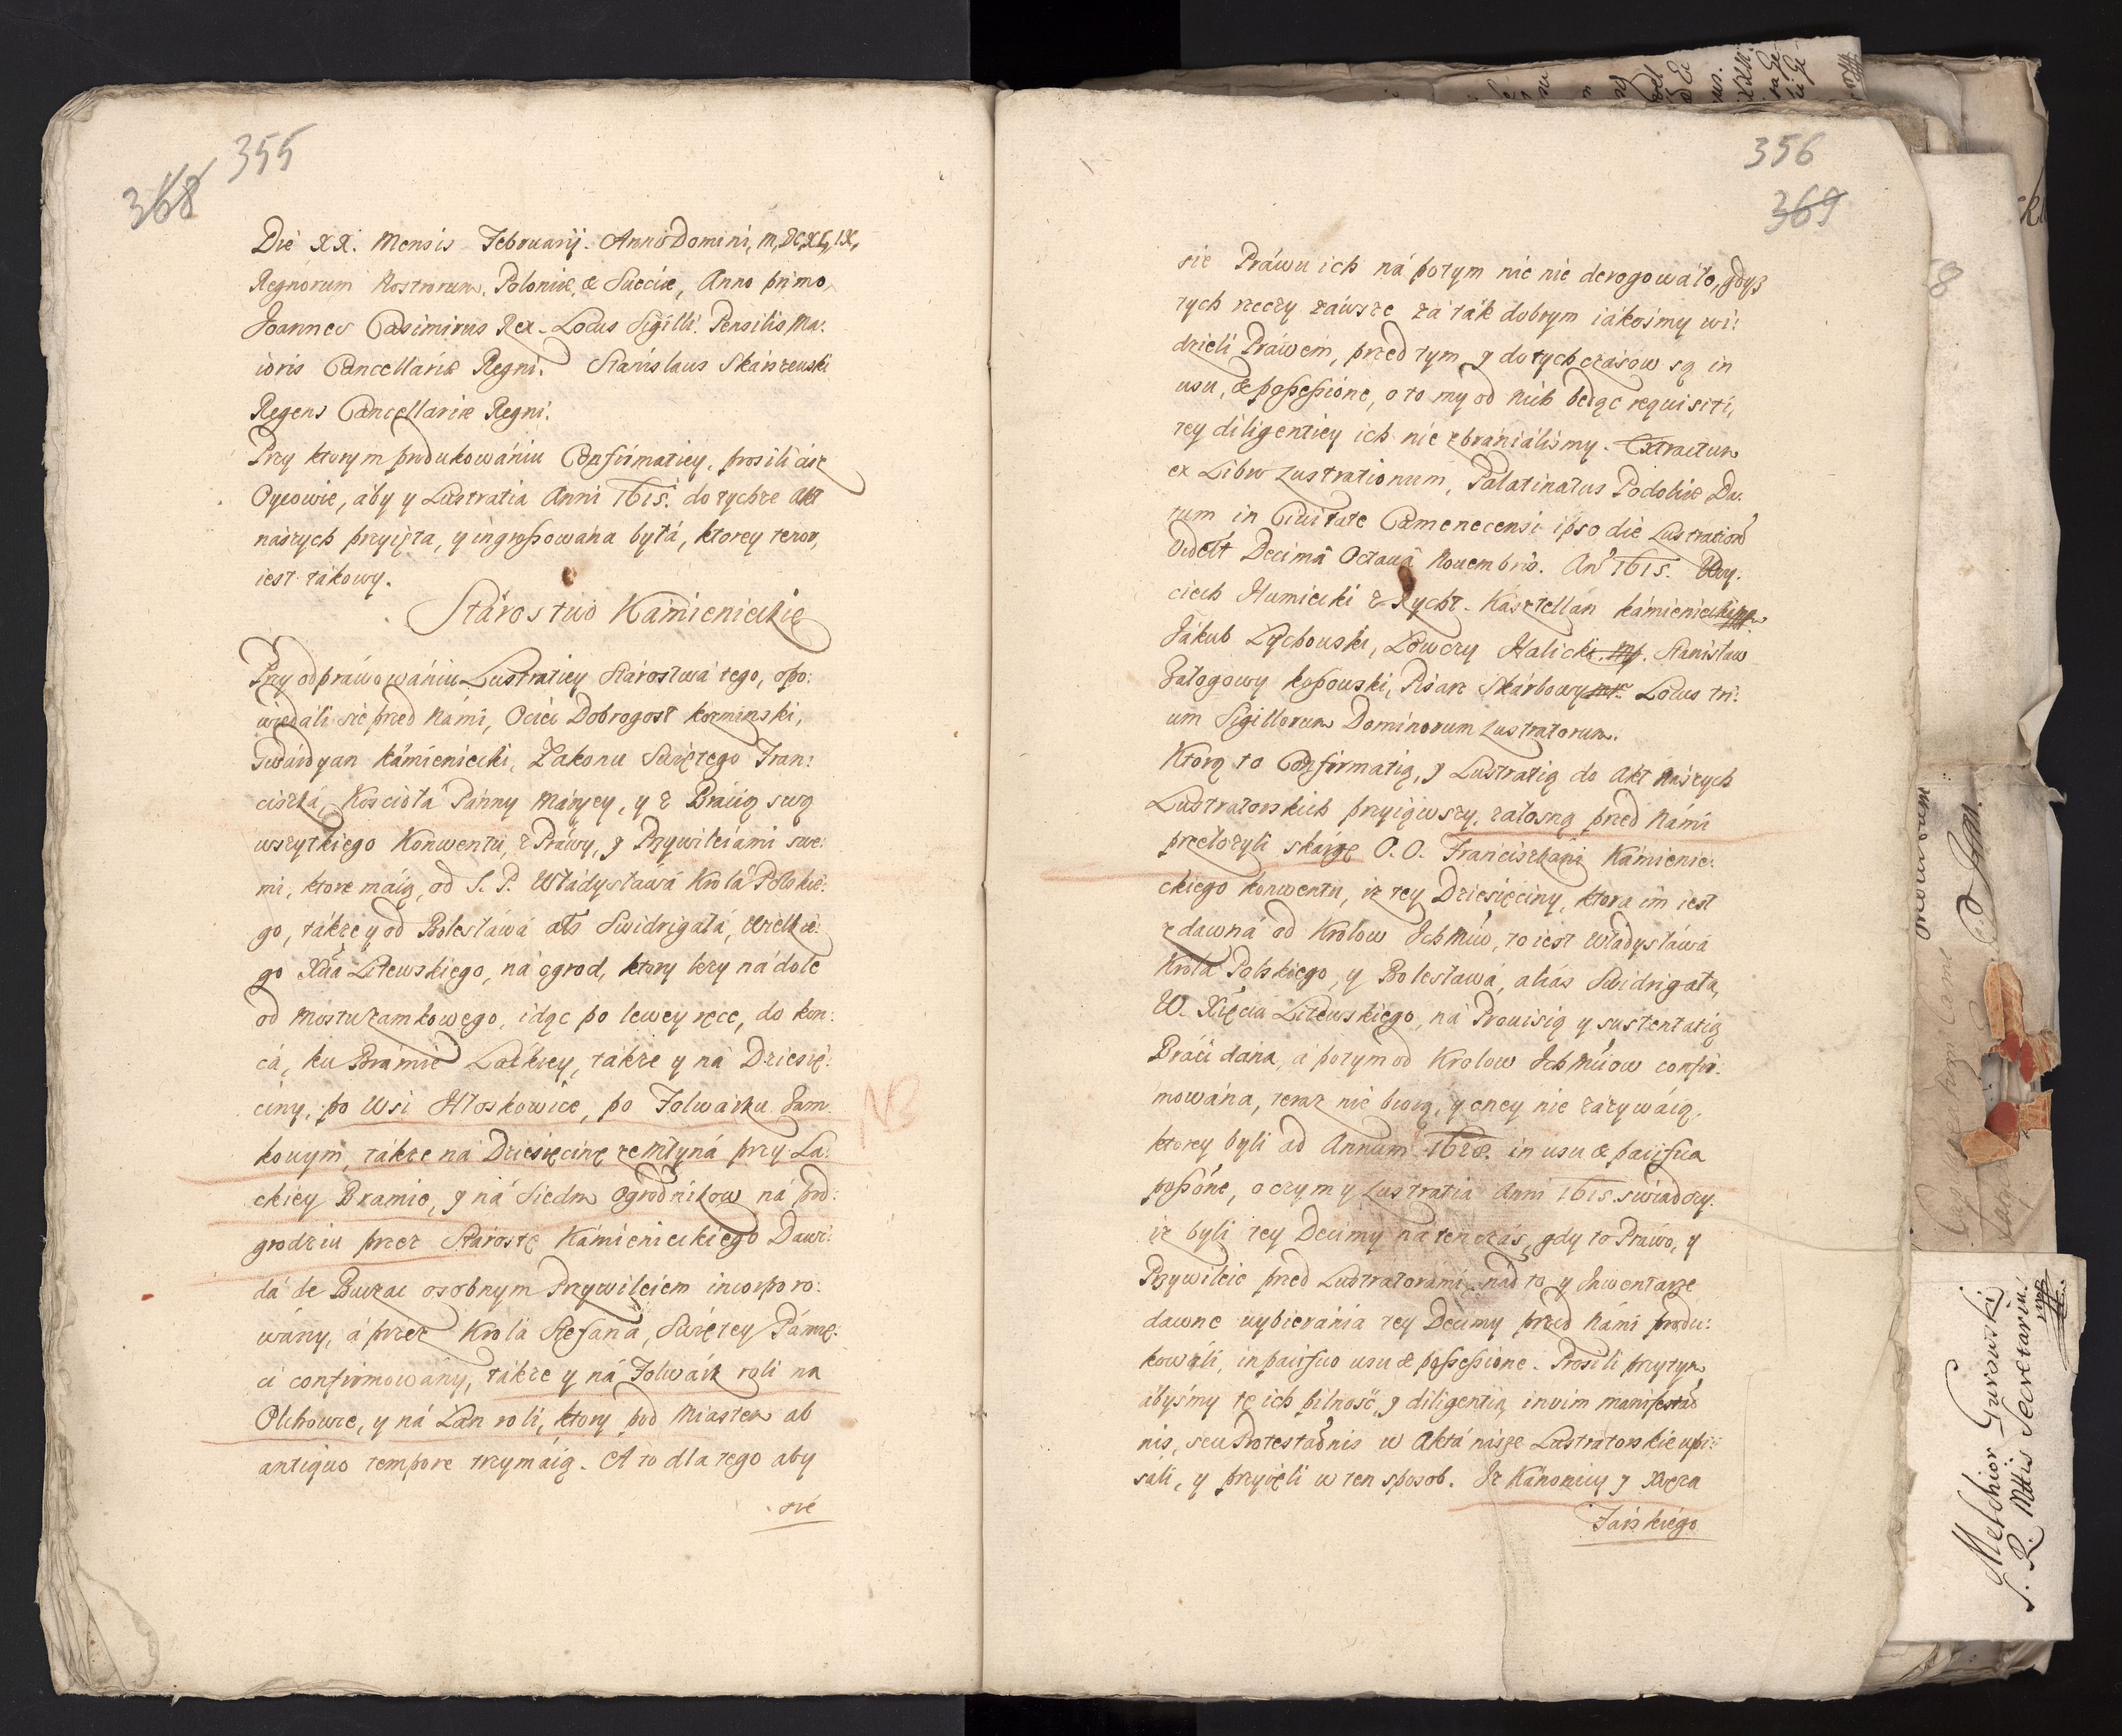 355
368
Die XX. Mensis Februarij. Anno Domini, M,DC,XL,IX,
Regnorum Nostrorum, Poloniæ, & Sueciæ, Anno primo,
Joannes Casimirus Rex. Locus Sigilli. Pensilis Ma:
ioris Cancellariæ Regni. Stanislaus Skarszewski
Regens Cancellariæ Regni.
Przy ktorym produkowániu Confirmatiey, prosili ciż
Oycowie, áby y Lustratia Anni 1615. do tychże Akt
nászych przyięta, y ingrossowána byłá, ktorey tenor,
iest tákowy.
Stárostwo Kámienieckie
Przy odpráwowániu Lustratiey Stárostwá tego, opo:
wiedáli się przed Námi, Ociec Dobrogost Kozminski,
Gwárdyan Kámieniecki, Zakonu Swiętego Fran:
ciszká, Kosciołá Pánny Máryey, y z Bráćią swą
wszytkiego Konwentu, z Práwy, y Przywileiámi swe:
mi, ktore máią, od S. P. Włádysławá Krolá Polskie:
go, tákże y od Bolesławá als Swidrigałá, Wielkie:
go Xcia Litewskiego, ná ogrod, ktory leży ná dole
od Mostu Zamkowego, idąc po lewey ręce, do kon:
cá, ku Brámie Láckiey, tákże y ná Dziesię:
ciny, po Wsi Hłoskowice, po Folwárku Zam:
kowym, tákże ná Dziesięcinę ze Młyná przy La:
NB
ckiey Bramie, y ná Siedm Ogrodnikow ná pod:
grodziu przez Stárostę Kámienieckiego Dawi:
dá de Buczac osobnym Przywileiem incorporo:
wány, á przez Krolá Stefaná, Swiętey Pámię:
ci confirmowány, tákże y ná Folwárk roli na
Olchowze, y ná Łan roli, ktory pod Miastem ab
antiquo tempore trzymáią. A to dla tego aby
się
356
369
się Práwu ich ná potym nic nie derogowáło, gdyż
tych rzeczy záwsze zá ták dobrym iákosmy wi:
dzieli Práwem, przed tym, y do tych czásow są in
usu, & possessione, o to my od nich będąc requisiti,
tey diligentiey ich nie zbraniálismy. Extractum
ex Libro Lustrationum, Palatinatus Podoliæ Da:
tum in Civitate Camenecensi ipso die Lustrationis
videlt Decimâ Octauâ Nouembris. An̄o 1615. Woy:
ciech Humiecki z Rycht. Kásztellan Kámieniecki mp
Jákub Lychowski, Łowczy Halicki. mp. Stánisław
Záłogowy Kossowski, Pisarz Skárbowy mp. Locus tri:
um Sigillorum Dominorum Lustratorum.
Ktorą to Confirmatią, y Lustratią do Akt Naszych
Lustratorskich przyiąwszy, żałosną przed Námi
przełożyli skárgę O. O. Franciszkáni Kámienie:
ckiego Konwentu, iż tey Dziesięciny, ktora im iest
z dawná od Krolow Ich Mćiow, to iest Władysławá
Krolá Polskiego, y Bolesławá, aliás Swidrigałá,
W. Xięcia Litewskiego, ná Prouisią y sustentatią
Bráći dána, á potym od Krolow Ich Mćiow confir:
mowána, teraz nie biorą, y oney nie záżywáią,
ktorey byli ad Annum in usu & pacifica
possōne, o czym y Lustratia Anni 1615. swiadczy.
iż byli tey Decimy ná ten czás, gdy to Práwo, y
Przywileie przed Lustratorámi, nád to y Inwentarze
dawne wybieránia tey Decimy przed Námi produ:
kowáli, in pacifico usu & possessione. Prosili przytym
ábysmy tę ich pilność, y diligentią in vim manifestaō
nis, seu Protestaōnis w Aktá násze Lustratorskie wpi:
sáli, y przyięli w ten sposob. Iż Kánonicy y Xiędza
Járskiego
Melchior Gurowski
S. R. Mttis Secretarius
mp